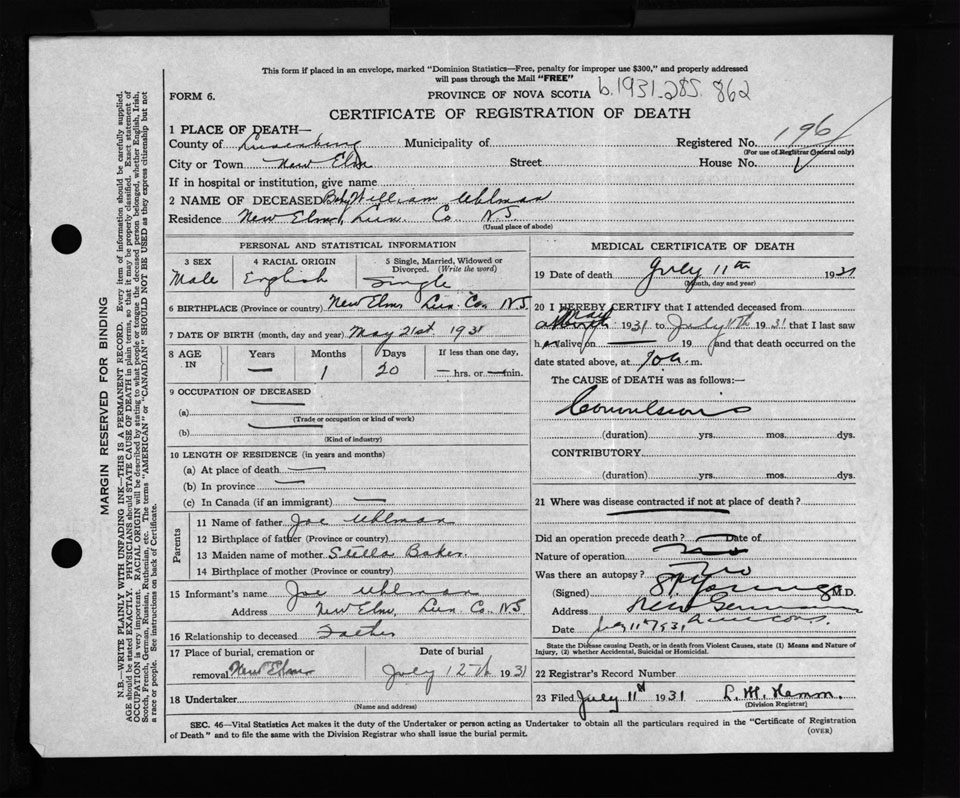 This form if placed in an envelope, marked "Dominion Statistics—Free, penalty for improper use $300," and properly addressed
will pass through the Mail "FREE"
FORM 6.
PROVINCE OF NOVA SCOTIA b.1931-285 862
CERTIFICATE OF REGISTRATION OF DEATH
1 PLACE OF DEATH—
County of Lunenburg Municipality of Registered No. 196
(For use of Registrar General only)
City or Town New Elm Street House No.
If in hospital or institution, give name
2 NAME OF DECEASED Baby William Uhlman
Residence New Elm, Lun. Co. N.S.
(Usual place of abode)
PERSONAL AND STATISTICAL INFORMATION
3 SEX 4 RACIAL ORIGIN 5 Single, Married, Widowed or
Divorced. (Write the word)
Male English Single
6 BIRTHPLACE (Province or country) New Elm Lun. Co. N.S.
7 DATE OF BIRTH (month, day and year) May 21st 1931
8 AGE IN Years Months Days If less than one day,
— 1 20 — hrs. or — min.
9 OCCUPATION OF DECEASED
(a) —
(Trade or occupation or kind of work)
(b) —
(Kind of industry)
10 LENGTH OF RESIDENCE (in years and months)
(a) At place of death —
(b) In province —
(c) In Canada (if an immigrant) —
Parents
11 Name of father Joe Uhlman
12 Birthplace of father (Province or country)
13 Maiden name of mother Stella Baker
14 Birthplace of mother (Province or country)
15 Informant's name Joe Uhlman
Address New Elm, Lun. Co. N.S
16 Relationship to deceased Father
17 Place of burial, cremation or Date of burial
removal New Elm July 12th 1931
18 Undertaker
(Name and address)
MEDICAL CERTIFICATE OF DEATH
19 Date of death July 11th 1931
(Month, day and year)
20 I HEREBY CERTIFY that I attended deceased from
May
1931 to July 11th 1931 that I last saw
h alive on — 19 and that death occurred on the
date stated above, at 10 a. m.
The CAUSE of DEATH was as follows:—
Convulsions
(duration) yrs. mos. dys.
CONTRIBUTORY
(duration) yrs. mos. dys.
21 Where was disease contracted if not at place of death?
Did an operation precede death? — Date of
Nature of operation no
Was there an autopsy? No
(Signed) Young M.D.
Address New Germany
Date July 11th 1931
State the Disease causing Death, or in death from Violent Causes, state (1) Means and Nature of
Injury, (2) whether Accidental, Suicidal or Homicidal.
22 Registrar's Record Number
23 Filed July 11th 1931
(Division Registrar)
SEC. 46—Vital Statistics Act makes it the duty of the Undertaker or person acting as Undertaker to obtain all the particulars required in the "Certificate of Registration
of Death" and to file the same with the Division Registrar who shall issue the burial permit.
(OVER)
MARGIN RESERVED FOR BINDING
N.B.—WRITE PLAINLY WITH UNFADING INK—THIS IS A PERMANENT RECORD. Every item of information should be carefully supplied.
AGE should be stated EXACTLY. PHYSICIANS should STATE CAUSE OF DEATH in plain terms, so that it may be properly classified. Exact statement of
OCCUPATION is very important. RACIAL ORIGIN will be described by stating to what people or tongue the deceased person belonged, whether English, Irish,
Scotch, French, German, Russian, Ruthenian, etc. The terms "AMERICAN" or "CANADIAN" SHOULD NOT BE USED as they express citizenship but not
a race or people. See instructions on back of Certificate.